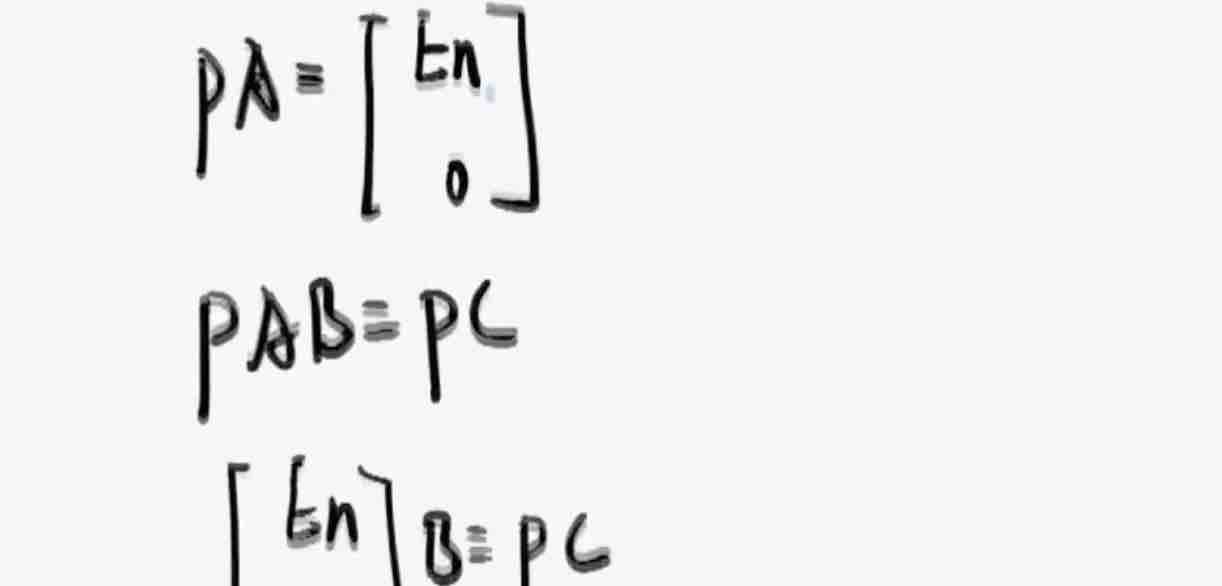 PA≡[En
0]
PAB≡PC
[En]B≡PC